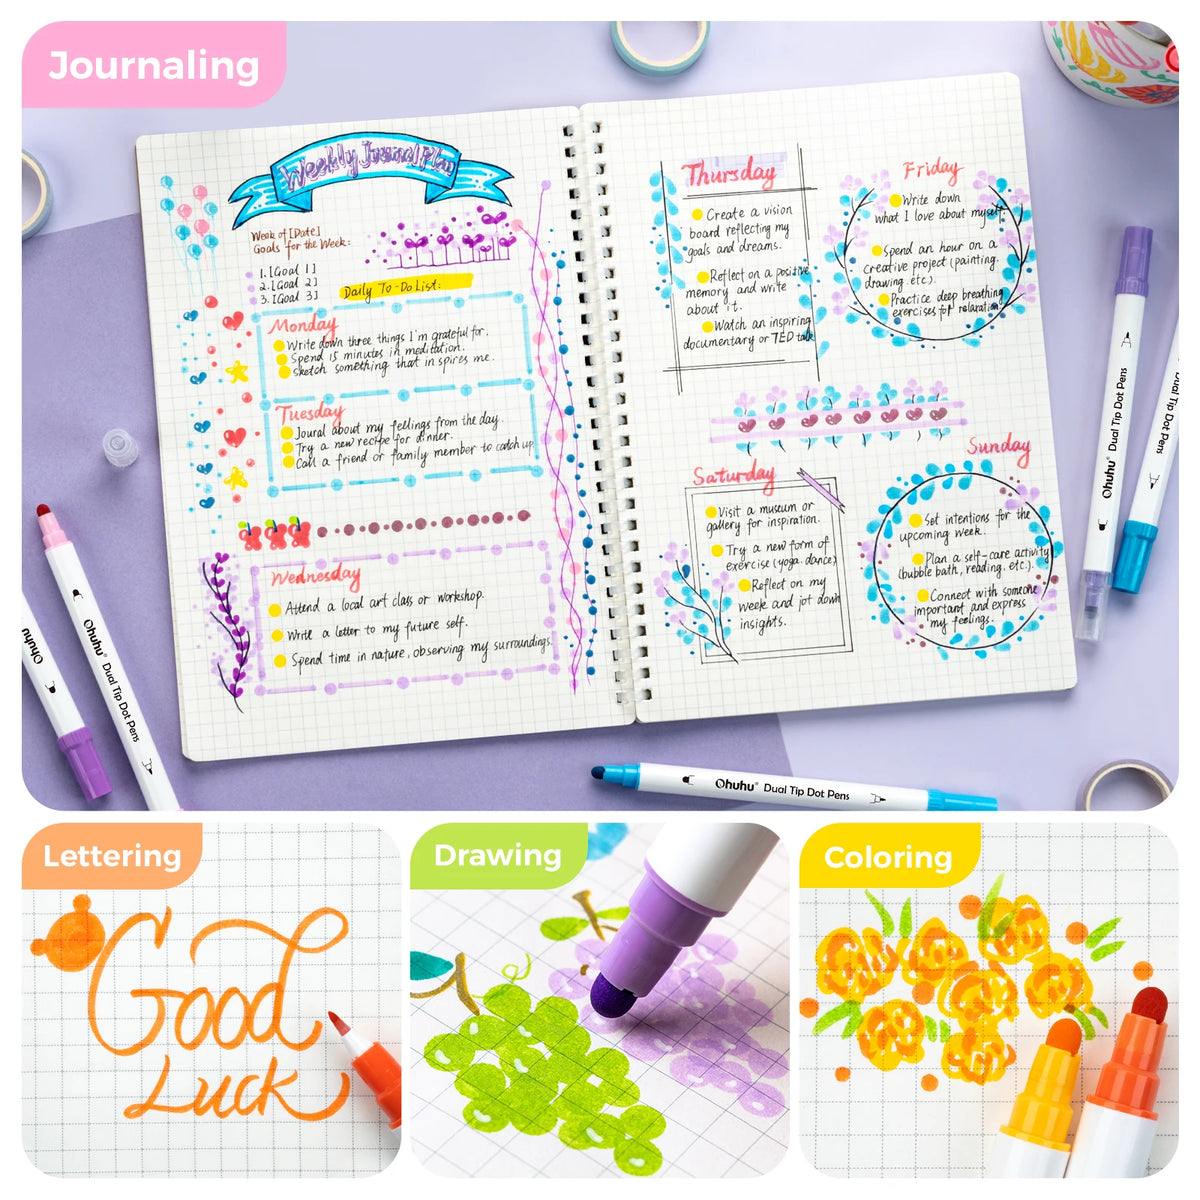 Journaling
Weekly Journal Plan
Week of [Date]
Goals for the Week:
1. [Goal 1]
2. [Goal 2]
3. [Goal 3]
Daily To-Do List:
Monday
Write down three things I'm grateful for.
Spend 15 minutes in meditation.
Sketch something that in spires me.
Tuesday
Joural about my feelings from the day.
Try a new recipe for dinner.
Call a friend or family member to catch up
Wednesday
Attend a local art class or workshop.
Write a letter to my future self.
Spend time in nature, observing my surroundings.
Thursday
Create a vision
board reflecting my
goals and dreams.
Reflect on a positive
memory and write
about it.
Watch an inspiring
documentary or TED talk
Friday
Write down
what I love about myself.
Spend an hour on a
creative project (painting.
drawing. etc.).
Practice deep breathing
exercises for relaxation
Saturday
Visit a museum or
gallery for inspiration.
Try a new form of
exercise (yoga. dance)
Reflect on my
week and jot down
insights.
Sunday
Set intentions for the
upcoming week.
Plan a self-care activity
(bubble bath, reading. etc.).
Connect with someone
important and express
my feelings.
Ohuhu
Ohuhu® Dual Tip Dot Pens
Ohuhu® Dual Tip Dot Pens
Ohuhu® Dual Tip Dot Pens
Dual Tip Dot Pens
Lettering
Good
Luck
Drawing
Coloring